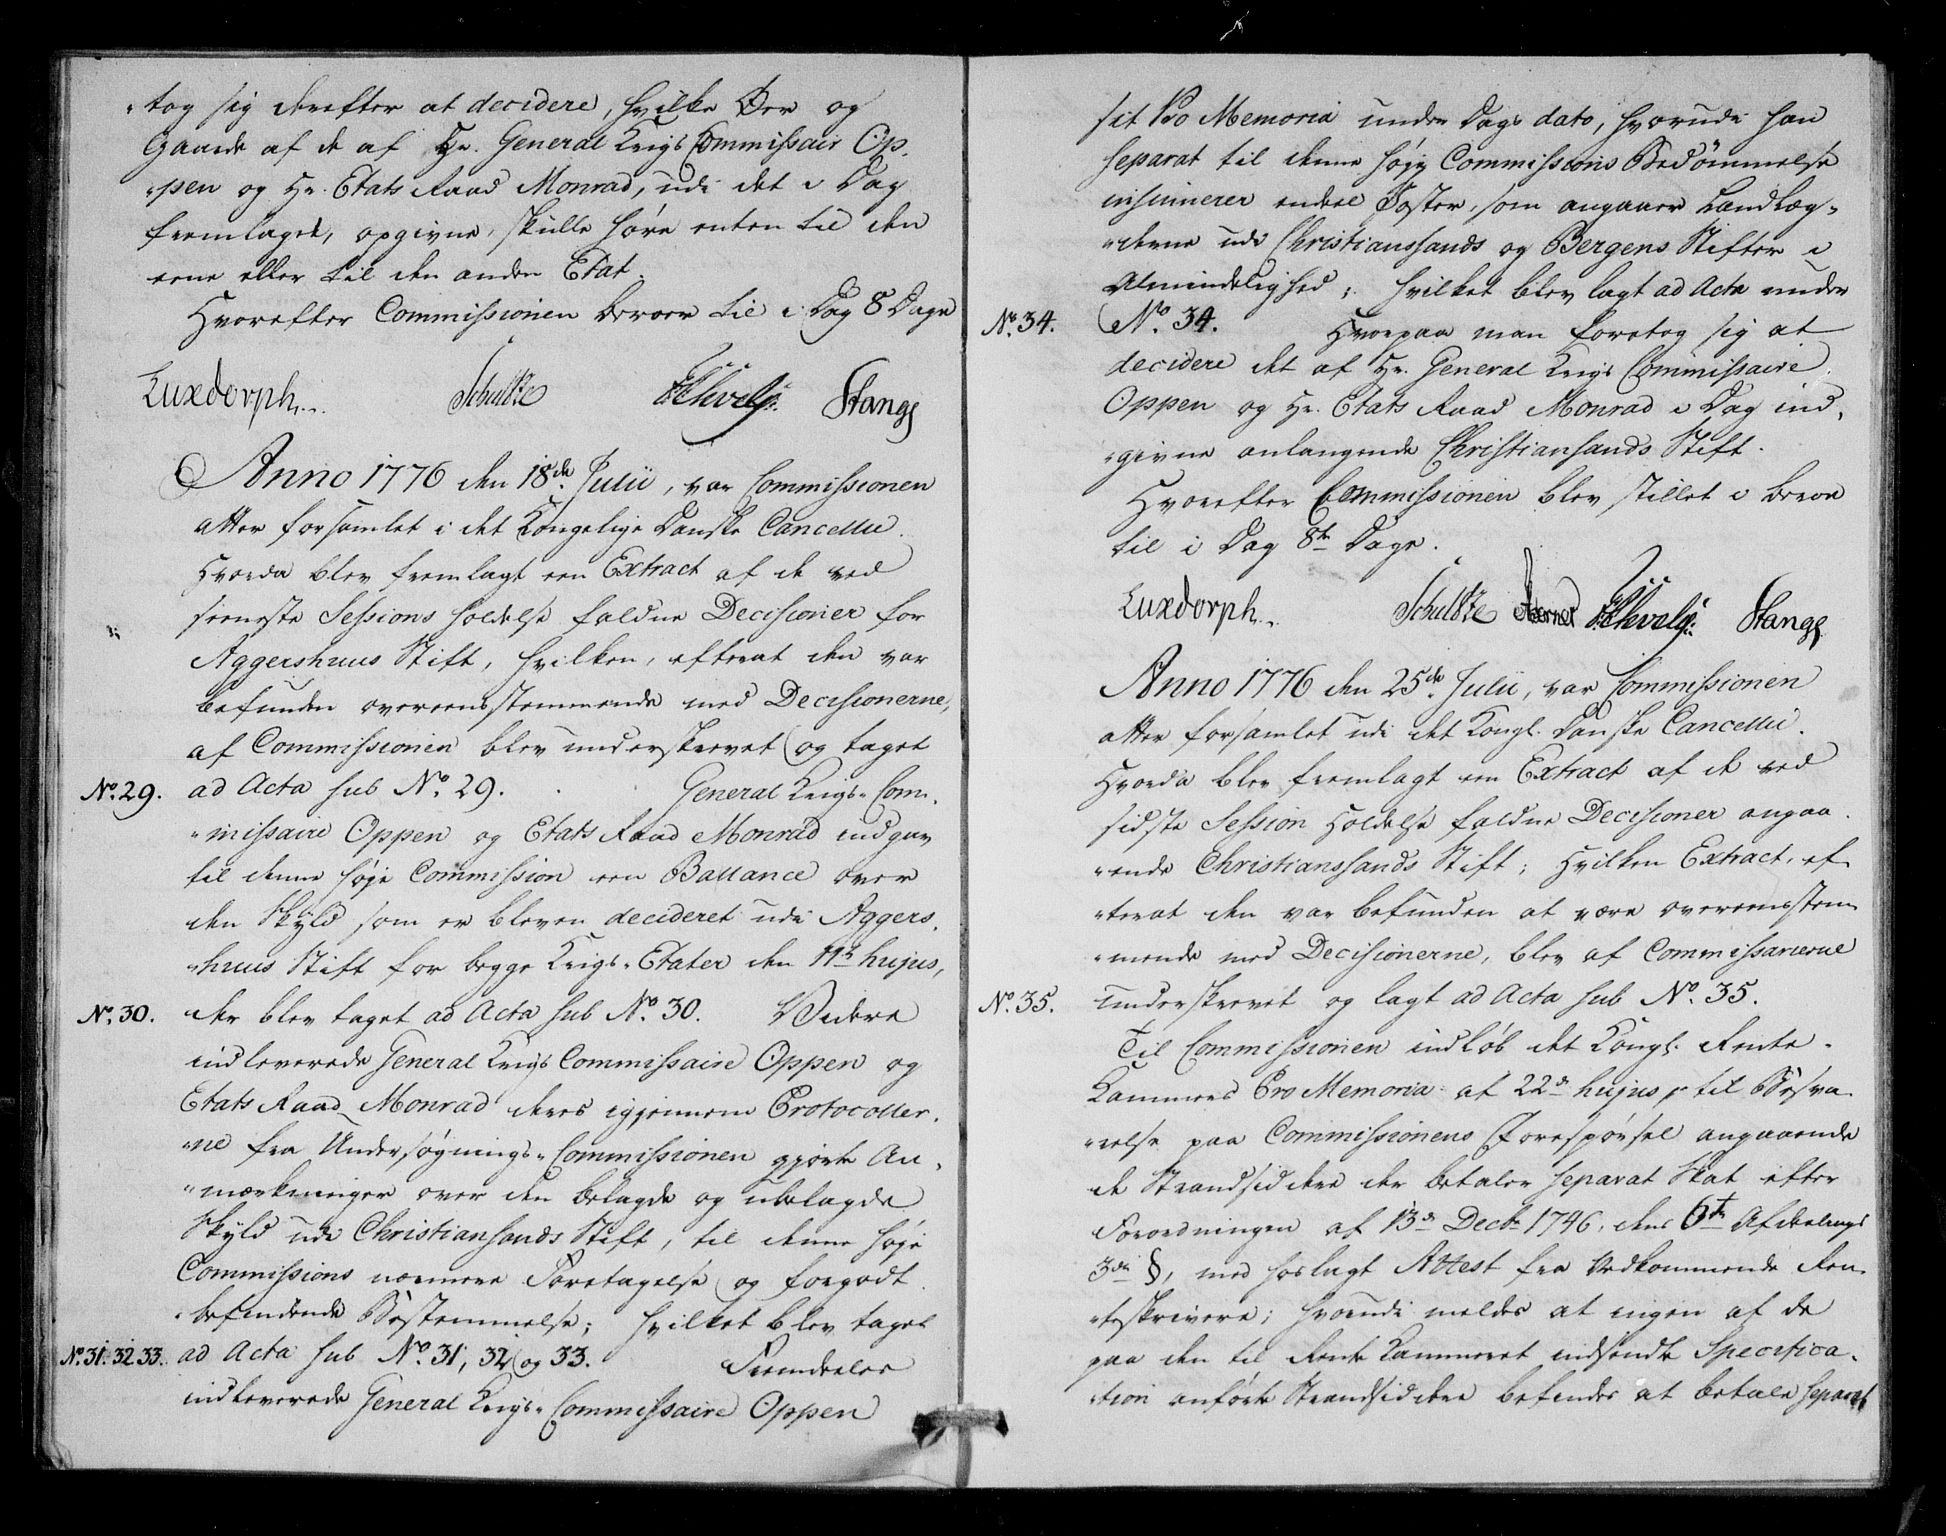 tog sig derefter at decidere, hvilke Øer og
Gaarde af de af Hr. General Krigs Commissair Op,
"pen og Hr. Etats Raad Monrad, udi det i Dag
fremlagde, opgivne, skulle høre enten til den
eene eller til den anden Etat.
Hvorefter Commissionen beroer til i Dag 8 Dage
Luxdorph. Schultze Stange
Anno 1776 den 18de Julii, var Commissionen
atter forsamlet i det Kongelige Danske Cancellie.
Hvorda blev fremlagt een Extract af de ved
seeneste Sessions Holdelse faldne Decisioner for
Aggershuus Stift, hvilken, efterat den var
befunden overeensstemmende med Decisionerne,
af Commissionen blev underskrevet og taget
No. 29. ad Acta sub No. 29. General Krigs-Com-
"missaire Oppen og Etats Raad Monrad indgav
til denne høje Commission een Ballance over
den Skyld som er bleven decideret udi Aggers,
"huus Stift for begge Krigs-Etater den 11te hujus,
No. 30. der blev taget ad Acta sub No. 30. Videre
indleverede General Krigs Commissaire Oppen og
Etats Raad Monrad deres igjennem Protocoller,
"ne fra Undersøgnings-Commissionen gjorte An,
"mærkninger over den belagde og ubelagde
Skyld udi Christiansands Stift, til denne høje
Commissions nærmere Foretagelse og forgodt
befindende Bestemmelse; hvilket blev taget
No. 31. 32. 33. ad Acta sub No. 31, 32 og 33. Fremdeeles
indleverede General Krigs-Commissaire Oppen
sit Pro Memoria under Dags dato, hvorudi han
separat til denne høje Commissions Bedømmelse
insinuerer endeel Poster, som angaaer Landlæg-
"derne udi Christianssands og Bergens Stifter i
Almindelighed; hvilket blev lagt ad Acta under
No. 34. No. 34. Hvorpaa man foretog sig at
decidere det af Hr. General Krigs Commissaire
Oppen og Hr. Etats Raad Monrad i Dag ind,
"givne anlangende Christiansands Stift.
Hvorefter Commissionen blev stillet i Beroe
til i Dag 8te Dage.
Luxdorph. Schultze Stange
Anno 1776 den 25de Julii, var Commissionen
atter forsamlet udi det Kongl. Danske Cancellie.
Hvorda blev fremlagt een Extract af de ved
sidste Session Holdelse faldne Decisioner angaa,
"ende Christianssands Stift; hvilken Extract, ef-
"terat den var befunden at være overeensstem
"mende med Decisionerne, blev af Commissarierne
No. 35. underskrevet og lagt ad Acta sub No. 35.
Til Commissionen indløb det Kongl. Rente-
Kammers Pro Memoria af 22de hujus til Besva-
"relse paa Commissionens Forespørsel angaaende
de Strandsiddere der betaler separat Skat efter
Forordningen af 13de Decbr 1746, dens 6te Afdeelings
3die §, med hoslagt Attest fra Vedkommende Ren-
"teskrivere; hvorudi meldes at ingen af de
paa den til Rente Kammeret indsendte Specifica-
"tion anførte Strandsiddere befindes at betale separat